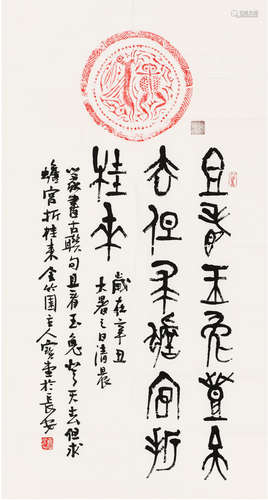 且看玉兔登天
去但求蟾宫折
桂来
歲在辛丑
大暑之日清晨
篆書古联句且看玉兔登天去但求
蟾宫折桂来 金竹園主人於長安